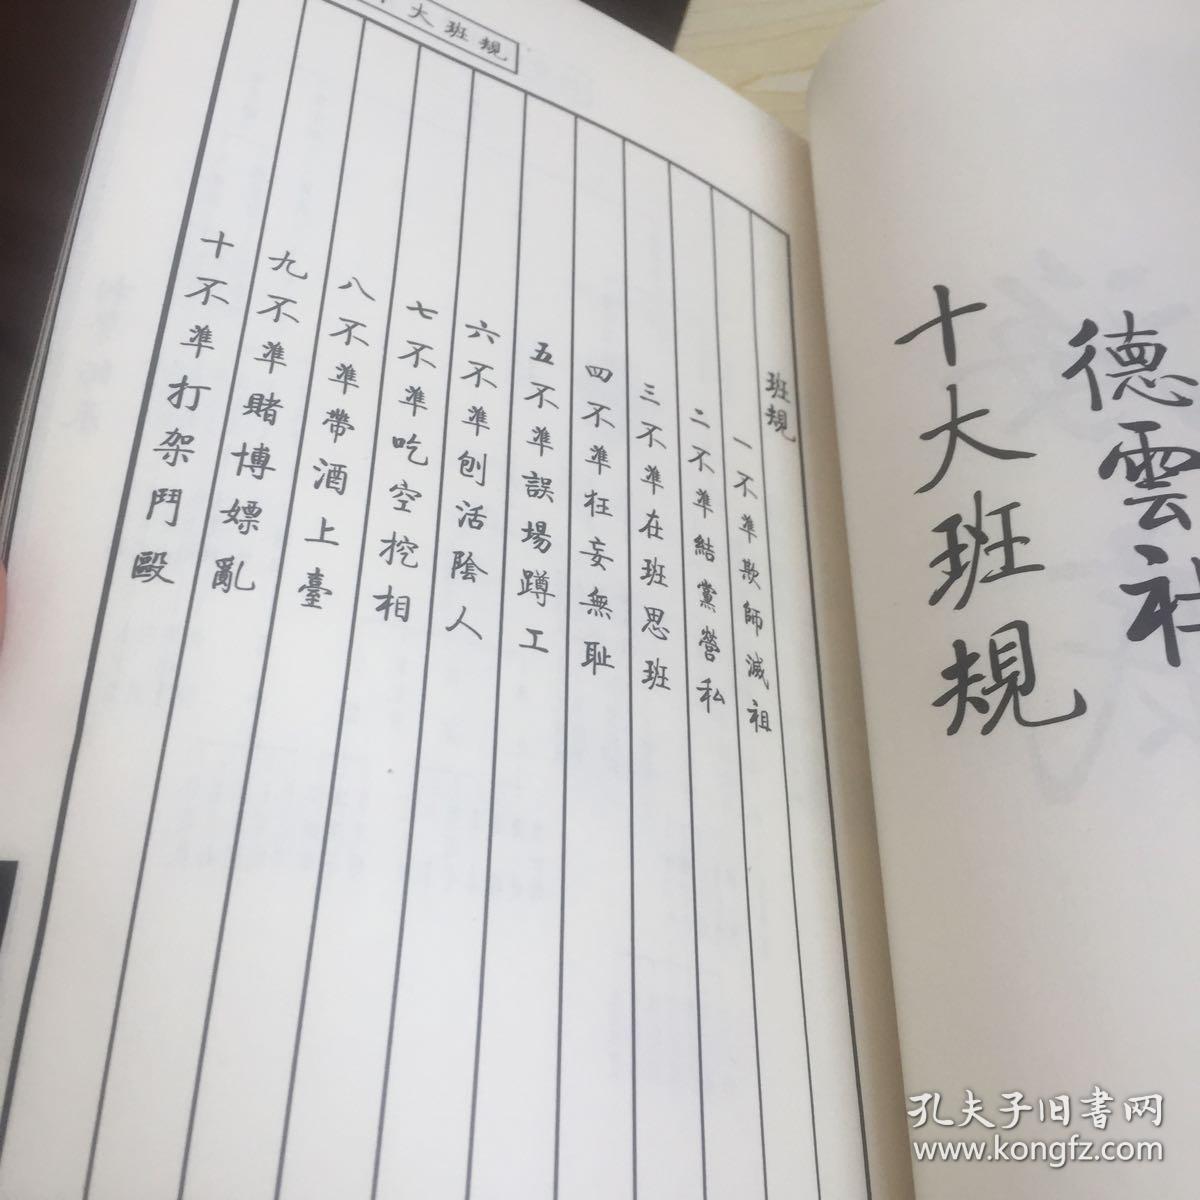 德雲社
十大班規
十大班規
班規
一不準欺師滅祖
二不準結黨營私
三不準在班思班
四不準枉妄無耻
五不準誤場蹲工
六不準刨活陰人
七不準吃空挖相
八不準帶酒上臺
九不準賭博嫖亂
十不準打架鬥毆
孔夫子旧書网
www.kongfz.com